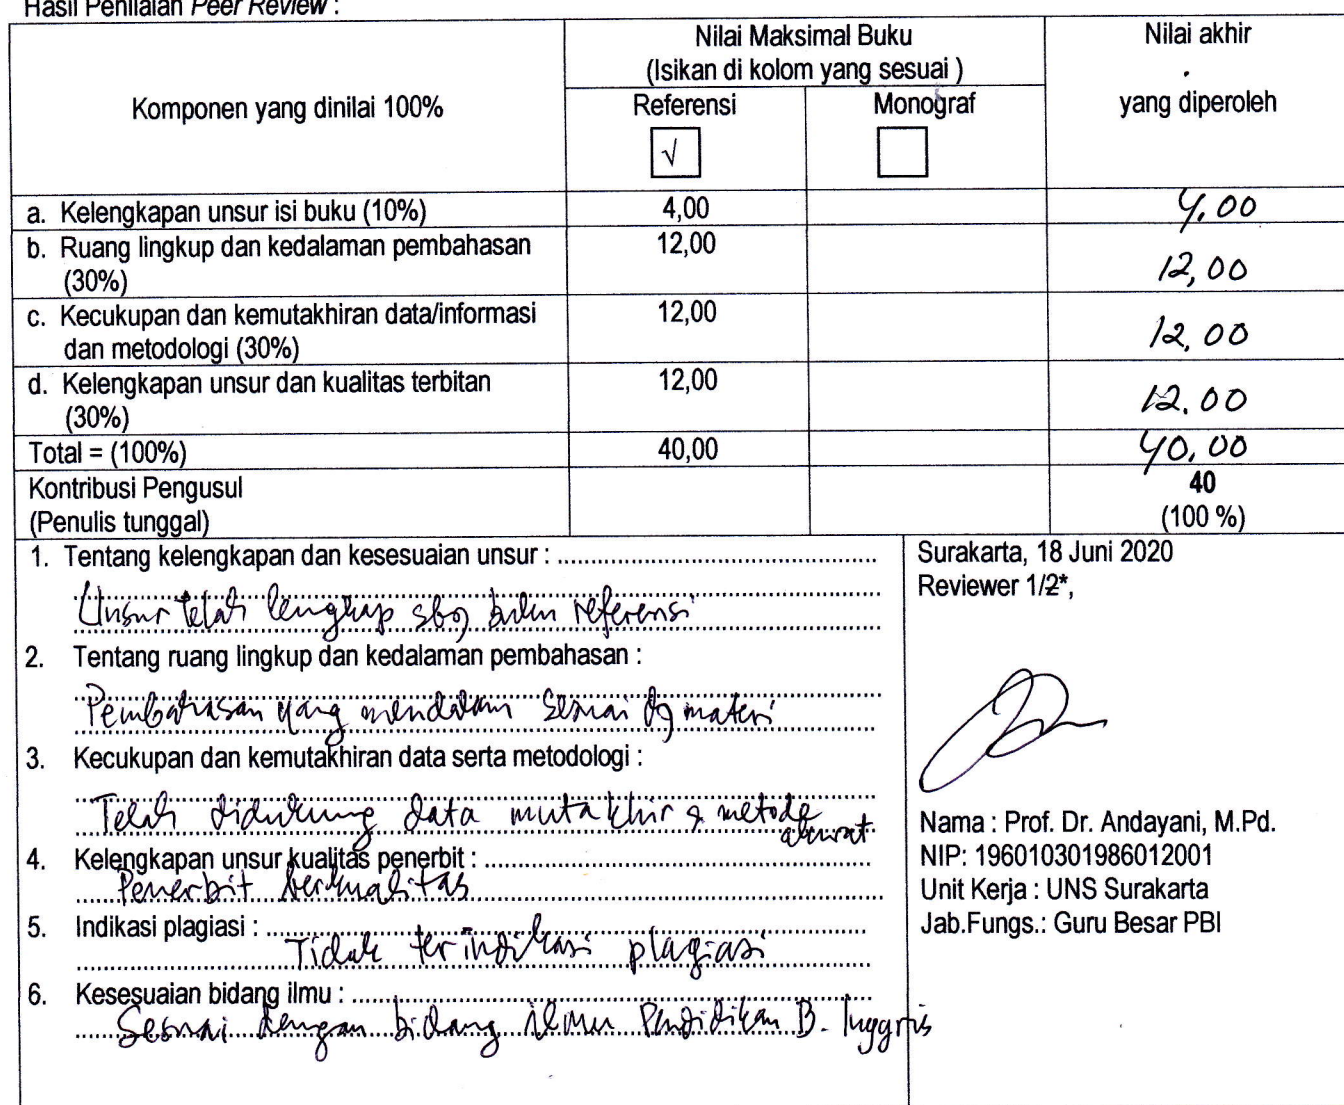 Hasil Penilaian Peer Review :
Nilai Maksimal Buku
(Isikan di kolom yang sesuai )
Nilai akhir
yang diperoleh
Komponen yang dinilai 100%
Referensi
Monograf
√
a. Kelengkapan unsur isi buku (10%) 4,00 4,00
b. Ruang lingkup dan kedalaman pembahasan 12,00
(30%) 12,00
c. Kecukupan dan kemutakhiran data/informasi 12,00
dan metodologi (30%) 12,00
d. Kelengkapan unsur dan kualitas terbitan 12,00
(30%) 12.00
Total = (100%) 40,00 40,00
Kontribusi Pengusul 40
(Penulis tunggal) (100 %)
1. Tentang kelengkapan dan kesesuaian unsur :
Unsur telah lengkap sbg buku referensi
2. Tentang ruang lingkup dan kedalaman pembahasan :
Pembahasan yang mendalam sesuai dg materi
3. Kecukupan dan kemutakhiran data serta metodologi :
Telah didukung data mutakhir & metode
akurat
4. Kelengkapan unsur kualitas penerbit :
Penerbit berkualitas
5. Indikasi plagiasi :
Tidak terindikasi plagiasi
6. Kesesuaian bidang ilmu :
Sesuai dengan bidang ilmu Pendidikan B. Inggris
Surakarta, 18 Juni 2020
Reviewer 1/2*,
Nama : Prof. Dr. Andayani, M.Pd.
NIP: 196010301986012001
Unit Kerja : UNS Surakarta
Jab.Fungs.: Guru Besar PBI